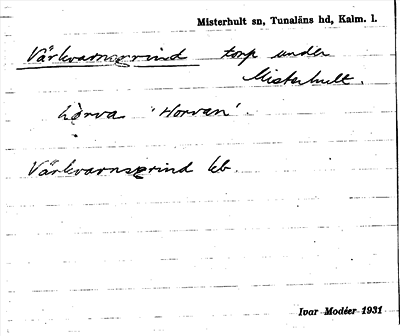 Misterhult sn, Tunaläns hd, Kalm. l.
Värkvarnsgrind torp under
Misterhult.
'Horvan'.
Värkvarnsgrind kb.
Ivar Modéer 1931